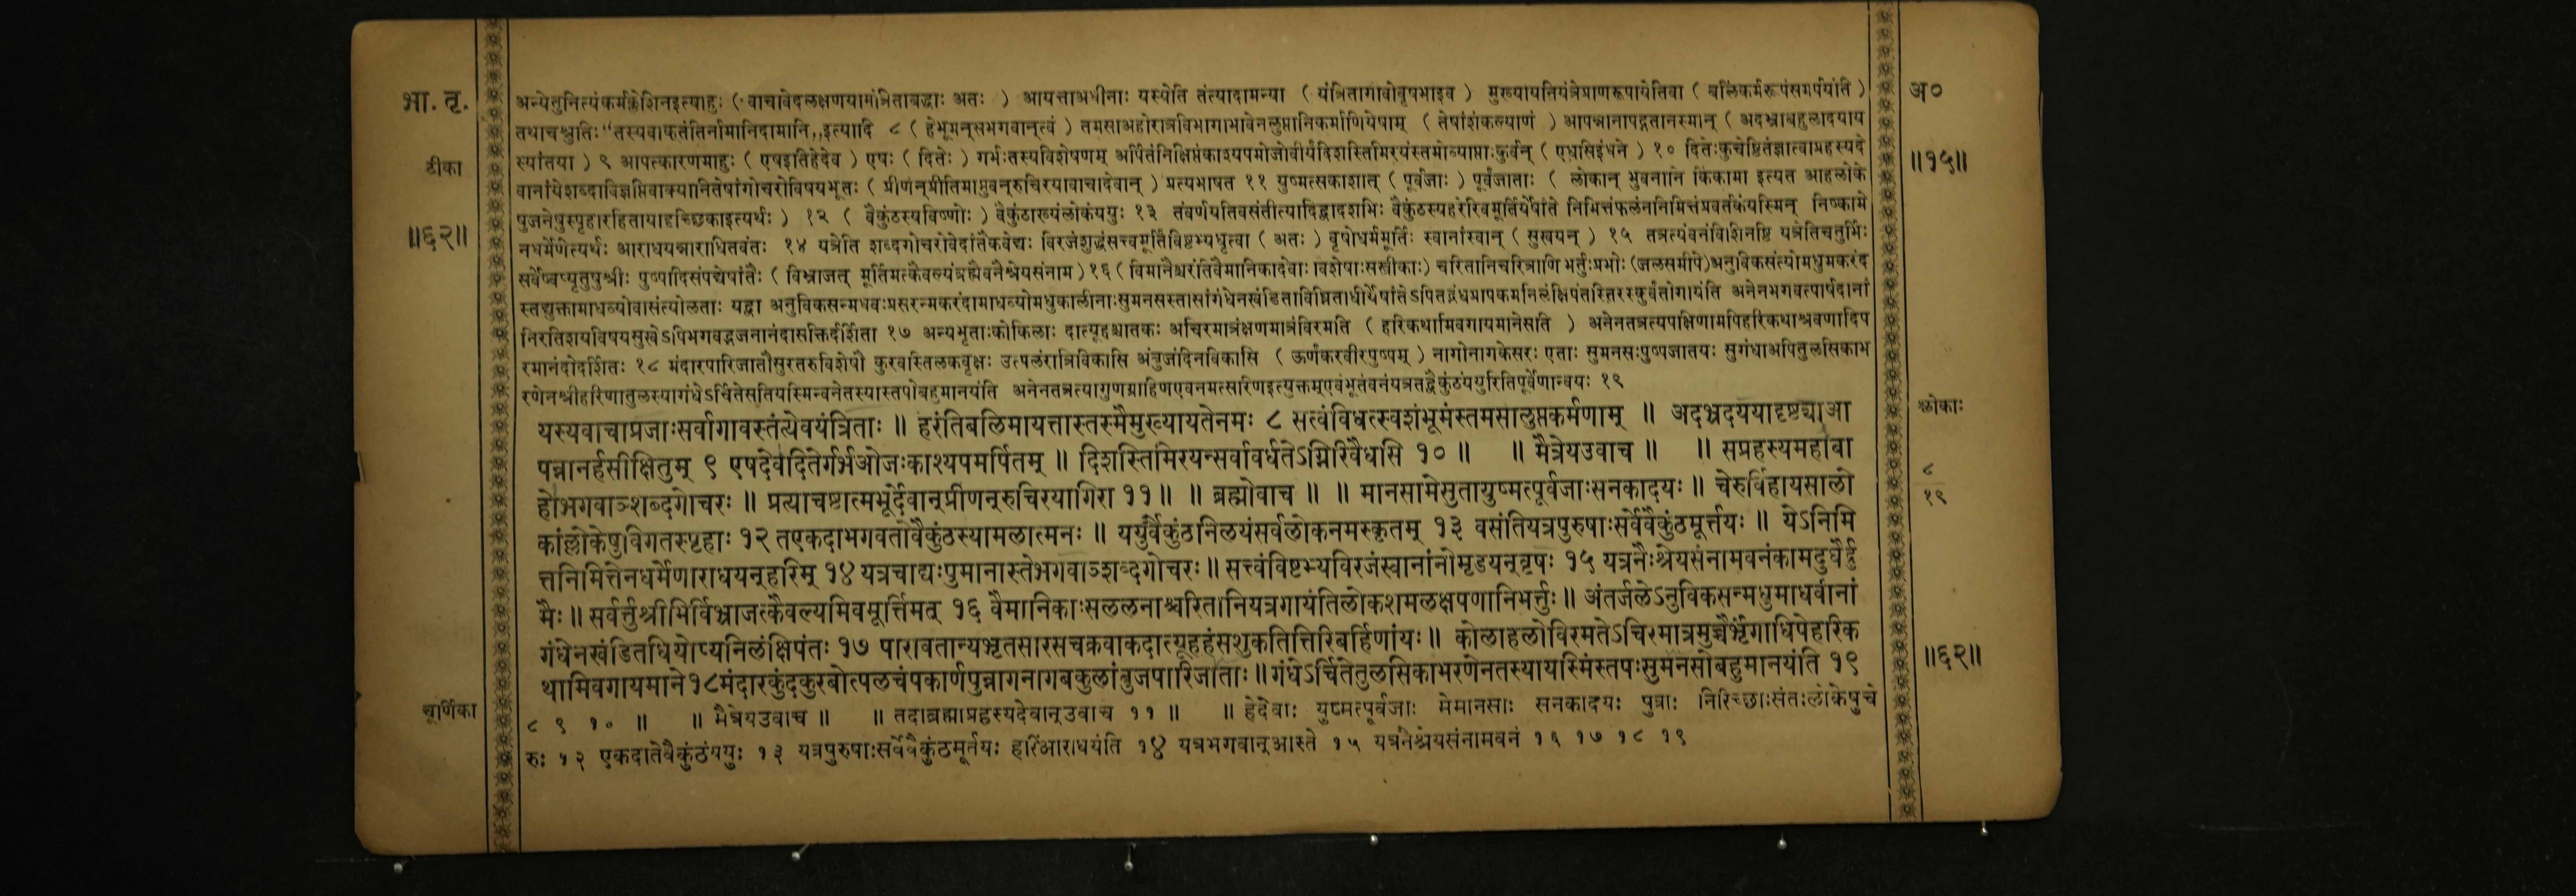 भा. तृ.
टीका
॥६२॥
अन्येतुनित्यंकर्मक्लेशिनइत्याहुः ( वाचावेदलक्षणयामंत्रिताबद्धाः अतः ) आयत्ताअधीनाः यस्येति तंत्यादामन्या ( यंत्रितागावोवृषभाइव ) मुख्यायनियंत्रेप्राणरूपायेतिवा ( बलिंकर्मरूपंसमर्पयंति )
तथाचश्रुतिः “तस्यवाक्तंतिर्नामानिदामानि,,इत्यादि ८ ( हेभूमन्सभगवान्त्वं ) तमसाअहोरात्रविभागाभावेनलुप्तानिकर्माणियेषाम् ( तेषांशंकल्याणं ) आपन्नानापद्गतानस्मान् ( अदभ्राबहुलादयाय
स्यांतया ) ९ आपत्कारणमाहुः ( एषइतिहेदेव ) एषः ( दितेः ) गर्भःतस्यविशेषणम् अर्पितंनिक्षिप्तंकाश्यपमोजोवीर्यंदिशस्तिमिरयंस्तमोव्याप्ताःकुर्वन् ( एधसिइंधने ) १० दितेःकुचेष्टितंज्ञात्वाप्रहस्यदे
वानांयेशब्दाविज्ञप्तिवाक्यानितेषांगोचरोविषयभूतः ( प्रीणन्प्रीतिमाप्नुवन्रुचिरयावाचादेवान् ) प्रत्यभाषत ११ युष्मत्सकाशात् ( पूर्वजाः ) पूर्वंजाताः ( लोकान् भुवनानि किंकामा इत्यत आहलोके
षुजनेषुस्पृहारहितायादृच्छिकाइत्यर्थः ) १२ ( वैकुंठस्यविष्णोः ) वैकुंठाख्यंलोकंययुः १३ तंवर्णयतिवसंतीत्यादिद्वादशभिः वैकुंठस्यहरेरिवमूर्तिर्येषांते निमित्तंफलंननिमित्तंप्रवर्तकंयस्मिन् निष्कामे
नधर्मेणेत्यर्थः आराधयन्नाराधितवंतः १४ यत्रेति शब्दगोचरोवेदांतैकवेद्यः विरजंशुद्धंसत्त्वमूर्तिंविष्टभ्यधृत्वा ( अतः ) वृषोधर्ममूर्तिः स्वानांस्वान् ( सुखयन् ) १५ तत्रत्यंवनंविशिनष्टि यत्रेतिचतुर्भिः
सर्वेष्वप्यृतुषुश्रीः पुष्पादिसंपद्येषांतैः ( विभ्राजत् मूर्तिमत्कैवल्यंब्रह्मैवनैश्रेयसंनाम ) १६ ( विमानैश्चरंतिवैमानिकादेवाः विशेषाःसस्त्रीकाः ) चरितानिचरित्राणि भर्तुःप्रभोः (जलसमीपे)अनुविकसंत्योमधुमकरंद
स्तद्युक्तामाधव्योवासंत्योलताः यद्वा अनुविकसन्मधवःप्रसरन्मकरंदामाधव्योमधुकालीनाःसुमनसस्तासांगंधेनखंडिताविघ्निताधीर्येषांतेऽपितद्गंधप्रापकमनिलंक्षिपंतस्तिरस्कुर्वंतोगायंति अनेनभगवत्पार्षदानां
निरतिशयविषयसुखेऽपिभगवद्भजनानंदासक्तिर्दर्शिता १७ अन्यभृताःकोकिलाः दात्यूहश्चातकः अचिरमात्रंक्षणमात्रंविरमति ( हरिकथामिवगायमानेसति ) अनेनतत्रत्यपक्षिणामपिहरिकथाश्रवणादिप
रमानंदोदर्शितः १८ मंदारपारिजातौसुरतरुविशेषौ कुरवस्तिलकवृक्षः उत्पलंरात्रिविकासि अंबुजंदिनविकासि ( ऊर्णंकरवीरपुष्पम् ) नागोनागकेसरः एताः सुमनसःपुष्पजातयः सुगंधाअपितुलसिकाभ
रणेनश्रीहरिणातुलस्यागंधेऽर्चितेसतियस्मिन्वनेतस्यास्तपोबहुमानयंति अनेनतत्रत्यागुणग्राहिणएवनमत्सारिणइत्युक्तम्एवंभूतंवनंयत्रतद्वैकुंठंययुरितिपूर्वेणान्वयः १९
यस्यवाचाप्रजाःसर्वागावस्तंत्येवयंत्रिताः ॥ हरंतिबलिमायत्तास्तस्मैमुख्यायतेनमः ८ सत्वंविधत्स्वशंभूमंस्तमसालुप्तकर्मणाम् ॥ अदभ्रदययादृष्ट्याआ
पन्नानर्हसीक्षितुम् ९ एषदेवदितेर्गर्भओजःकाश्यपमर्पितम् ॥ दिशस्तिमिरयन्सर्वावर्धतेऽग्निरिवैधसि १० ॥ ॥ मैत्रेयउवाच ॥ ॥ सप्रहस्यमहाबा
होभगवाञ्शब्दगोचरः ॥ प्रत्याचष्टात्मभूर्देवान्प्रीणन्रुचिरयागिरा ११ ॥ ॥ ब्रह्मोवाच ॥ ॥ मानसामेसुतायुष्मत्पूर्वजाःसनकादयः ॥ चेरुर्विहायसालो
कांल्लोकेषुविगतस्पृहाः १२ तएकदाभगवतोवैकुंठस्यामलात्मनः ॥ ययुर्वैकुंठनिलयंसर्वलोकनमस्कृतम् १३ वसंतियत्रपुरुषाःसर्वेवैकुंठमूर्त्तयः ॥ येऽनिमि
त्तनिमित्तेनधर्मेणाराधयन्हरिम् १४ यत्रचाद्यःपुमानास्तेभगवाञ्शब्दगोचरः ॥ सत्त्वंविष्टभ्यविरजंस्वानांनोमृडयन्वृषः १५ यत्रनैःश्रेयसंनामवनंकामदुघैर्द्रु
मैः ॥ सर्वर्त्तुश्रीभिर्विभ्राजत्कैवल्यमिवमूर्त्तिमत् १६ वैमानिकाःसललनाश्चरितानियत्रगायंतिलोकशमलक्षपणानिभर्त्तुः ॥ अंतर्जलेऽनुविकसन्मधुमाधवीनां
गंधेनखंडितधियोप्यनिलंक्षिपंतः १७ पारावतान्यभृतसारसचक्रवाकदात्यूहहंसशुकतित्तिरिबर्हिणांयः ॥ कोलाहलोविरमतेऽचिरमात्रमुच्चैर्भृंगाधिपेहरिक
थामिवगायमाने१८मंदारकुंदकुरबोत्पलचंपकार्णपुन्नागनागबकुलांबुजपारिजाताः ॥गंधेऽर्चितेतुलसिकाभरणेनतस्यायस्मिंस्तपःसुमनसोबहुमानयंति १९
चूर्णिका
८ ९ १० ॥ ॥ मैत्रेयउवाच ॥ ॥ तदाब्रह्माप्रहस्यदेवान्उवाच ११ ॥ ॥ हेदेवाः युष्मत्पूर्वजाः मेमानसाः सनकादयः पुत्राः निरिच्छाःसंतःलोकेषुचे
रुः १२ एकदातेवैकुंठंययुः १३ यत्रपुरुषाःसर्वेवैकुंठमूर्तयः हरिंआराधयंति १४ यत्रभगवान्आस्ते १५ यत्रनैश्रेयसंनामवनं १६ १७ १८ १९
अ०
॥१५॥
श्लोकाः
८
१९
॥६२॥